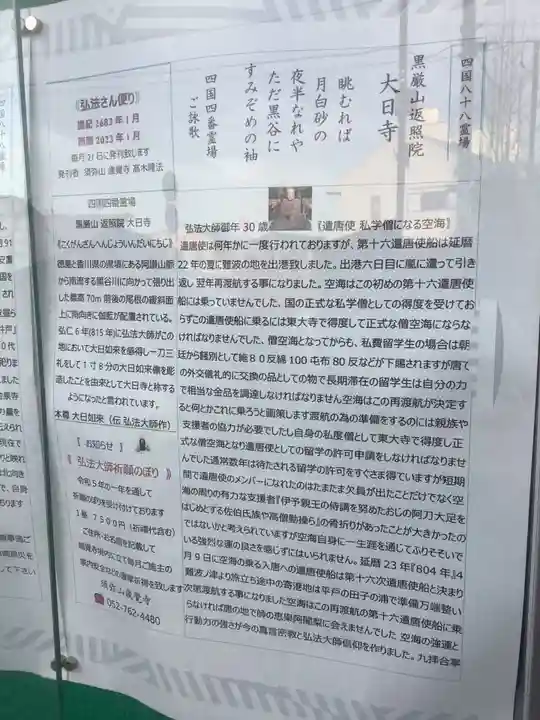 四国八十八霊場
黒巌山返照院
大日寺
眺むれば
月白砂の
夜半なれや
ただ黒谷に
すみぞめの袖
四国四番霊場
ご詠歌
《弘法さん便り》
皇紀2683年1月
西暦2023年1月
毎月21日に発刊致します
発行者 須弥山 遍覺寺 髙木隆法
四国四番霊場
黒巌山 返照院 大日寺
『こくがんざんへんじょういんだいにちじ』
徳島と香川県の県境にある阿讃山脈
から南流する黒谷川に向かって張り出
した標高70m前後の尾根の緩斜面
上に南向きに伽藍が配置されている。
弘仁6年(815年)に弘法大師がこの
地において大日如来を感得し一刀三
礼をして1寸8分の大日如来像を彫
造したことを由来として大日寺と称する
ようになったと言われています。
本尊 大日如来(伝 弘法大師作)
〖 お知らせ 〗
《 弘法大師祈願のぼり 》
令和5年の一年を通して
祈願のぼりを受け付けております
1基 7500円(祈祷代含む)
ご住所・お名前を記載して
境内安全などの護摩祈祷を致します
☎052-762-4480
弘法大師御年30歳
『遣唐使 私学僧になる空海』
遣唐使は何年かに一度行われておりますが、第十六遣唐使船は延暦
22年の夏に難波の地を出港致しました。出港六日目に嵐に遭って引き
返し翌年再渡航する事になりました。空海はこの初めの第十六遣唐使
船には乗っていませんでした。国の正式な私学僧としての得度を受けてお
らずこの遣唐使船に乗るには東大寺で得度して正式な僧空海にならな
ければなりませんでした、僧空海となってからも、私費留学生の場合は朝
廷から餞別として絁80反綿100屯布80反などが下賜されますが唐で
の外交儀礼的に交換の品としての物で長期滞在の留学生は自分の力
で相当な金品を調達しなければなりません空海はこの再渡航が決定す
ると何とかこれに乗ろうと画策します渡航の為の準備をするのには親族や
支援者の協力が必要でしたし自身の私度僧として東大寺で得度し正
式な僧空海となり遣唐使としての留学の許可申請をしなければなりませ
んでした通常数年は待たされる留学の許可をすぐさま得ていますが短期
間で遣唐使のメンバーになれたのはたまたま欠員が出たことだけでなく空
海の周りの有力な支援者『伊予親王の侍講を努めたおじの阿刀大足を
はじめとする佐伯氏族や高僧勤操ら』の骨折りがあったことが大きかったの
ではないかと考えられていますが空海自身に一生涯を通じてふりそそいで
いる強烈な運の良さを感じずにはいられません。延暦23年『804年』4
月9日に空海の乗る入唐への遣唐使船は第十六次遣唐使船と決まり
難波ノ津より旅立ち途中の寄港地は平戸の田子の浦で準備万端整い
次第渡航する事になりました空海はこの再渡航の第十六遣唐使船に乗
らなければ唐の地で師の恵果阿闍梨に会えませんでした 空海の強運と
行動力の強さが今の真言密教と弘法大師信仰を作りました。九拝合掌